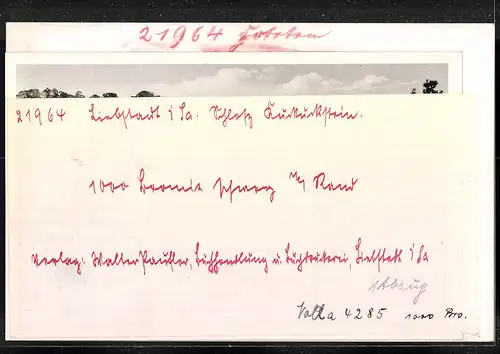 21964 Fototon
21964 Liebstadt i Sa. Schloß Kuckuckstein.
1000 Bromit schwarz m/ Rand
Verlag: Walter Paufler, Buchhandlung u. Buchdruckerei, Liebstadt i Sa
1 Abzug
4285 1000 Bro.